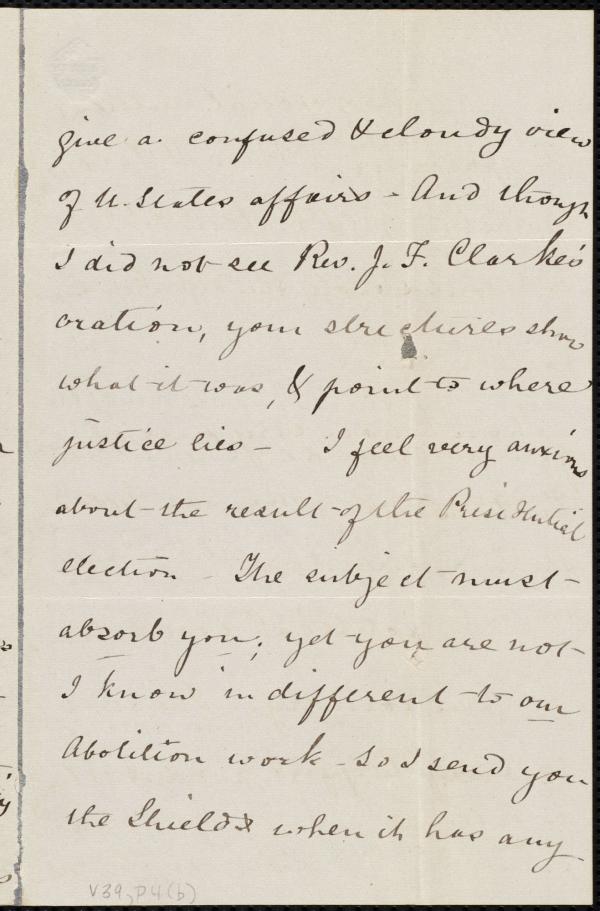 give a confused & cloudy view
of U. States affairs - And though
I did not see Rev. J. F. Clarke's
oration, your strictures show
what it was, & point to where
justice lies - I feel very anxious
about the result of the Presidential
election - The subject must
absorb you; yet you are not
I know indifferent to our
Abolition work - So I send you
the Shield when it has any
V39, P4(b)